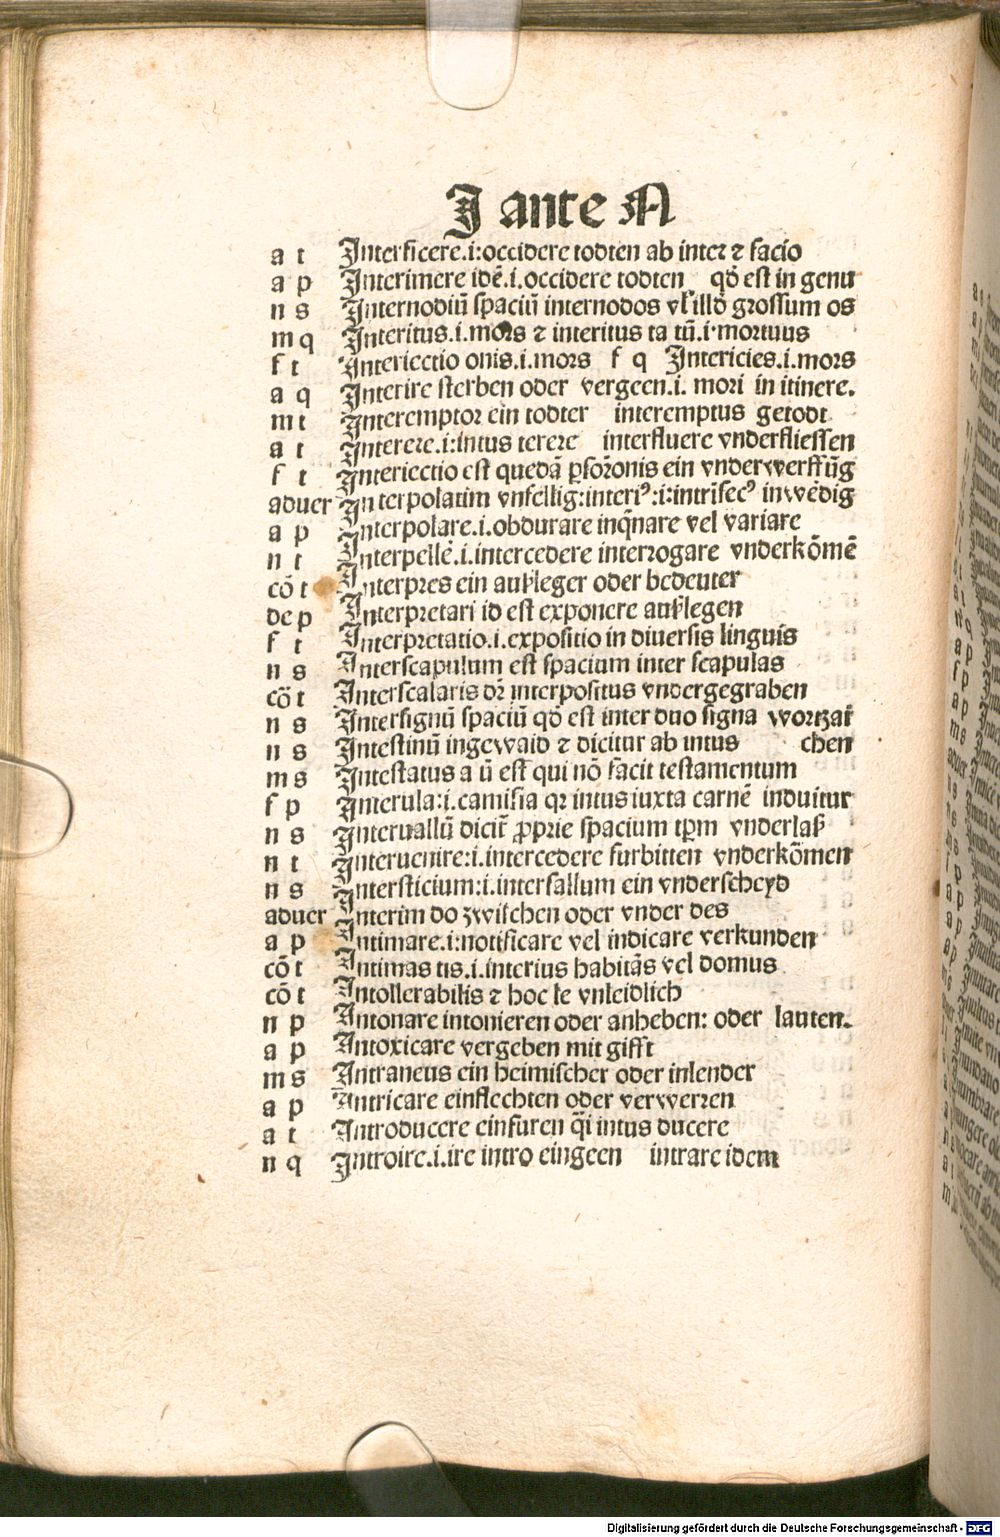 J ante N
a t Interficere.i:occidere todten ab inter ⁊ facio
a p Interimere idē.i.occidere todten qđ est in genu
n s Internodiū spaciū internodos vl' illđ grossum os
m q Interitus.i.mors ⁊ interitus ta tū.i.mortuus
f t Interiectio onis.i.mors f q Intericies.i.mors
a q Interire sterben oder vergeen.i. mori in itinere.
m t Interemptor ein todter interemptus getodt
a t Interere.i:intus terere interfluere vnderfliessen
f t Interiectio est quedā ꝑsoꝛ̄onis ein vnderwerffūg
aduer Interpolatim vnfellig:interiꝰ:i:intrīsecꝰ inwēdig
a p Interpolare.i.obdurare inq̄nare vel variare
n t Interpellē.i.intercedere interrogare vnderkōmē
cō t Interpres ein außleger oder bedeuter
de p Interpretari id est exponere außlegen
f t Interpretatio.i.expositio in diuersis linguis
n s Interscapulum est spacium inter scapulas
cō t Interscalaris dꝛ̄ interpositus vndergegraben
n s Intersignū spaciū qđ est inter duo signa wortzai
n s Intestinū ingewaid ⁊ dicitur ab intus chen
m s Intestatus a ū est qui nō facit testamentum
f p Interula:i.camisia qꝛ intus iuxta carnē induitur
n s Interuallū dicit̄ ꝓprie spacium tꝑm vnderlaß
n t Interuenire:i.intercedere furbitten vnderkōmen
n s Intersticium:i.interfallum ein vnderscheyd
aduer Interim do zwischen oder vnder des
a p Intimare.i:notificare vel indicare verkunden
cō t Intimas tis.i.interius habitās vel domus
cō t Intollerabilis ⁊ hoc le vnleidlich
n p Intonare intonieren oder anheben: oder lauten.
a p Intoxicare vergeben mit gifft
m s Intraneus ein heimischer oder inlender
a p Intricare einflechten oder verwerren
a t Introducere einfuren q̄i intus ducere
n q Introire.i.ire intro eingeen intrare idem
Digitalisierung gefördert durch die Deutsche Forschungsgemeinschaft - DFG